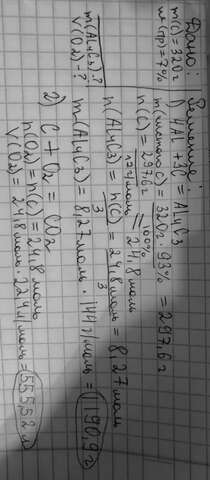 Дано:
m(C) = 320г
ω(пр) = 7%
m(Al4C3)-?
V(O2)-?
Решение:
1) 4Al + 3C = Al4C3
m(чистого C) = 320г · 93% / 100% = 297,6г
n(C) = 297,6г / 12г/моль = 24,8 моль
n(Al4C3) = n(C)/3 = 24,8 моль/3 = 8,27 моль
m(Al4C3) = 8,27 моль · 144г/моль = 1190,9г
2) C + O2 = CO2
n(O2) = n(C) = 24,8 моль
V(O2) = 24,8 моль · 22,4 л/моль = 555,52 л